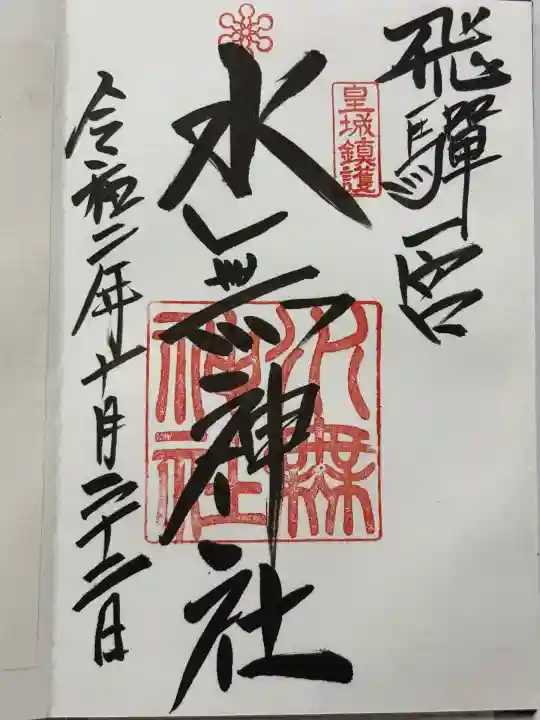 飛驒一宮
皇城鎮護
水無神社
水無神社
令和二年十月二十二日